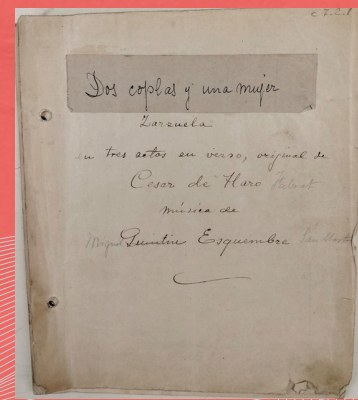 Dos coplas y una mujer
Zarzuela
en tres actos en verso, original de
Cesar de Haro
música de
Miguel Quintin Esquembre